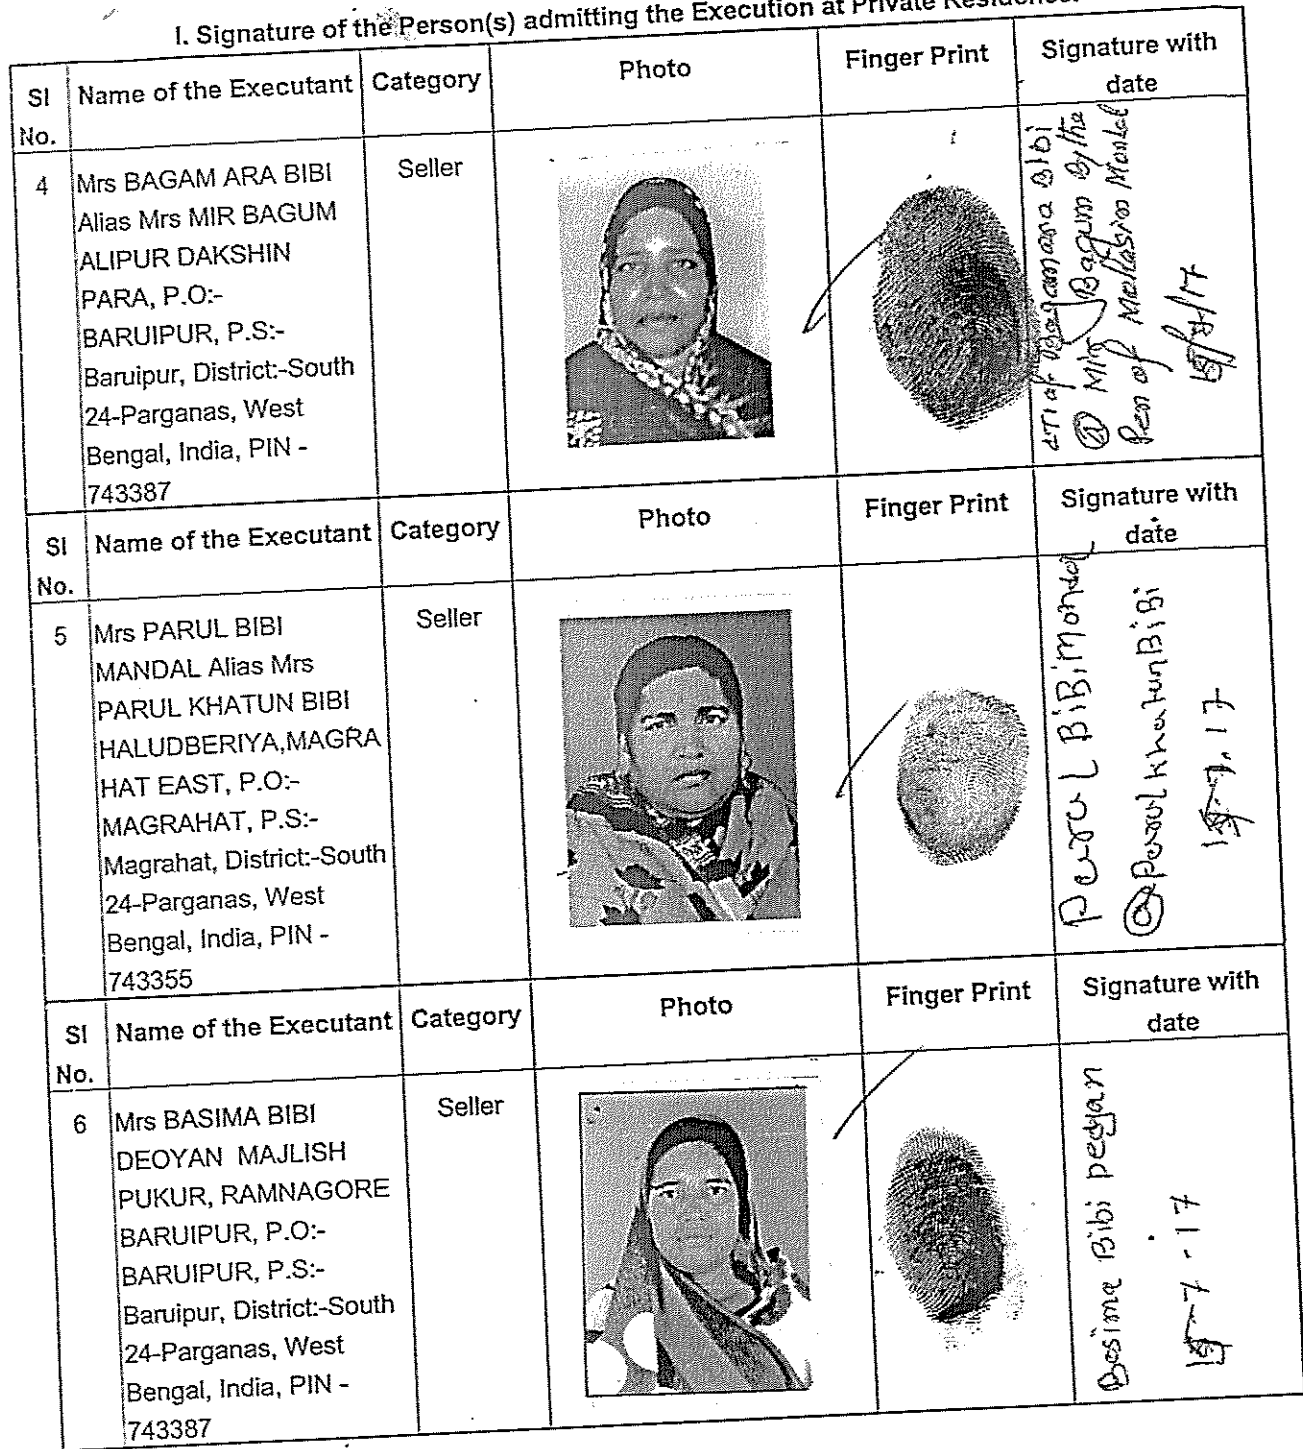 I. Signature of the Person(s) admitting the Execution at Private Residence.
Sl No. Name of the Executant Category Photo Finger Print Signature with date
4 Mrs BAGAM ARA BIBI Seller
Alias Mrs MIR BAGUM
ALIPUR DAKSHIN
PARA, P.O:-
BARUIPUR, P.S:-
Baruipur, District:-South
24-Parganas, West
Bengal, India, PIN -
743387
LTI of Bagamara Bibi
@ Mir Bagum By the
Pen of Mokasim Mondal
Sl No. Name of the Executant Category Photo Finger Print Signature with date
5 Mrs PARUL BIBI Seller
MANDAL Alias Mrs
PARUL KHATUN BIBI
HALUDBERIYA,MAGRA
HAT EAST, P.O:-
MAGRAHAT, P.S:-
Magrahat, District:-South
24-Parganas, West
Bengal, India, PIN -
743355
Parul BiBi Mondal
@ Parul khatun BiBi
Sl No. Name of the Executant Category Photo Finger Print Signature with date
6 Mrs BASIMA BIBI Seller
DEOYAN MAJLISH
PUKUR, RAMNAGORE
BARUIPUR, P.O:-
BARUIPUR, P.S:-
Baruipur, District:-South
24-Parganas, West
Bengal, India, PIN -
743387
Basima Bibi